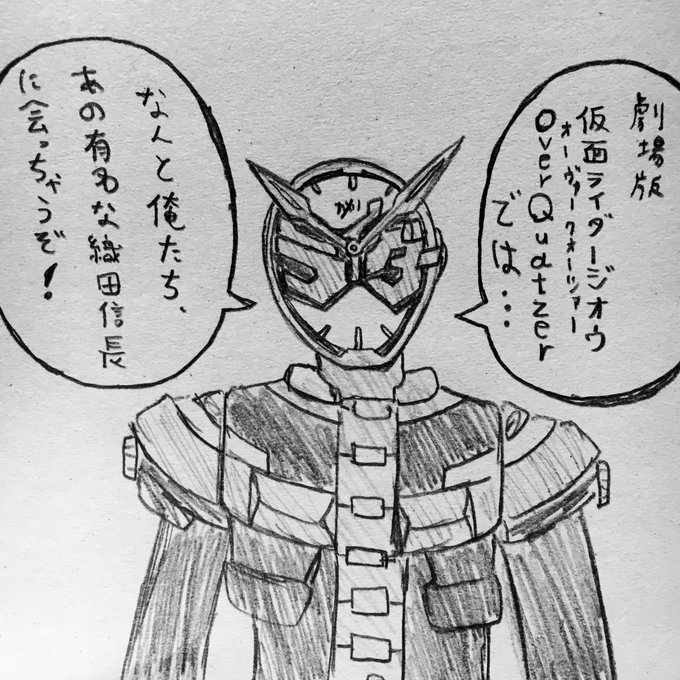 劇場版
仮面ライダージオウ
オーヴァークォーツァー
Over Quatzer
では...
なんと俺たち、
あの有名な織田信長
に会っちゃうぞ!